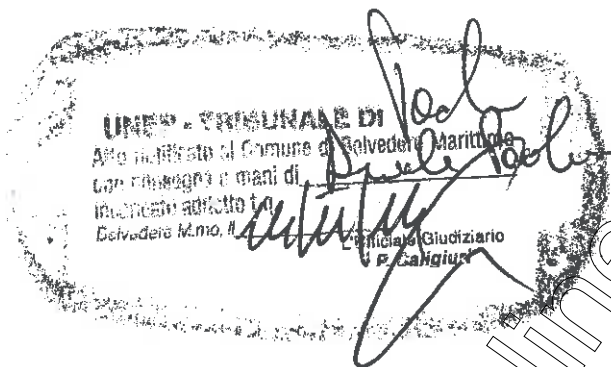 UNEP - TRIBUNALE DI Paola
Atto notificato al Comune di Belvedere Marittimo
con consegna a mani di Paola
incaricato addetto t.q.
Belvedere M.mo, lì
L'Ufficiale Giudiziario
F. Caligiuri
line